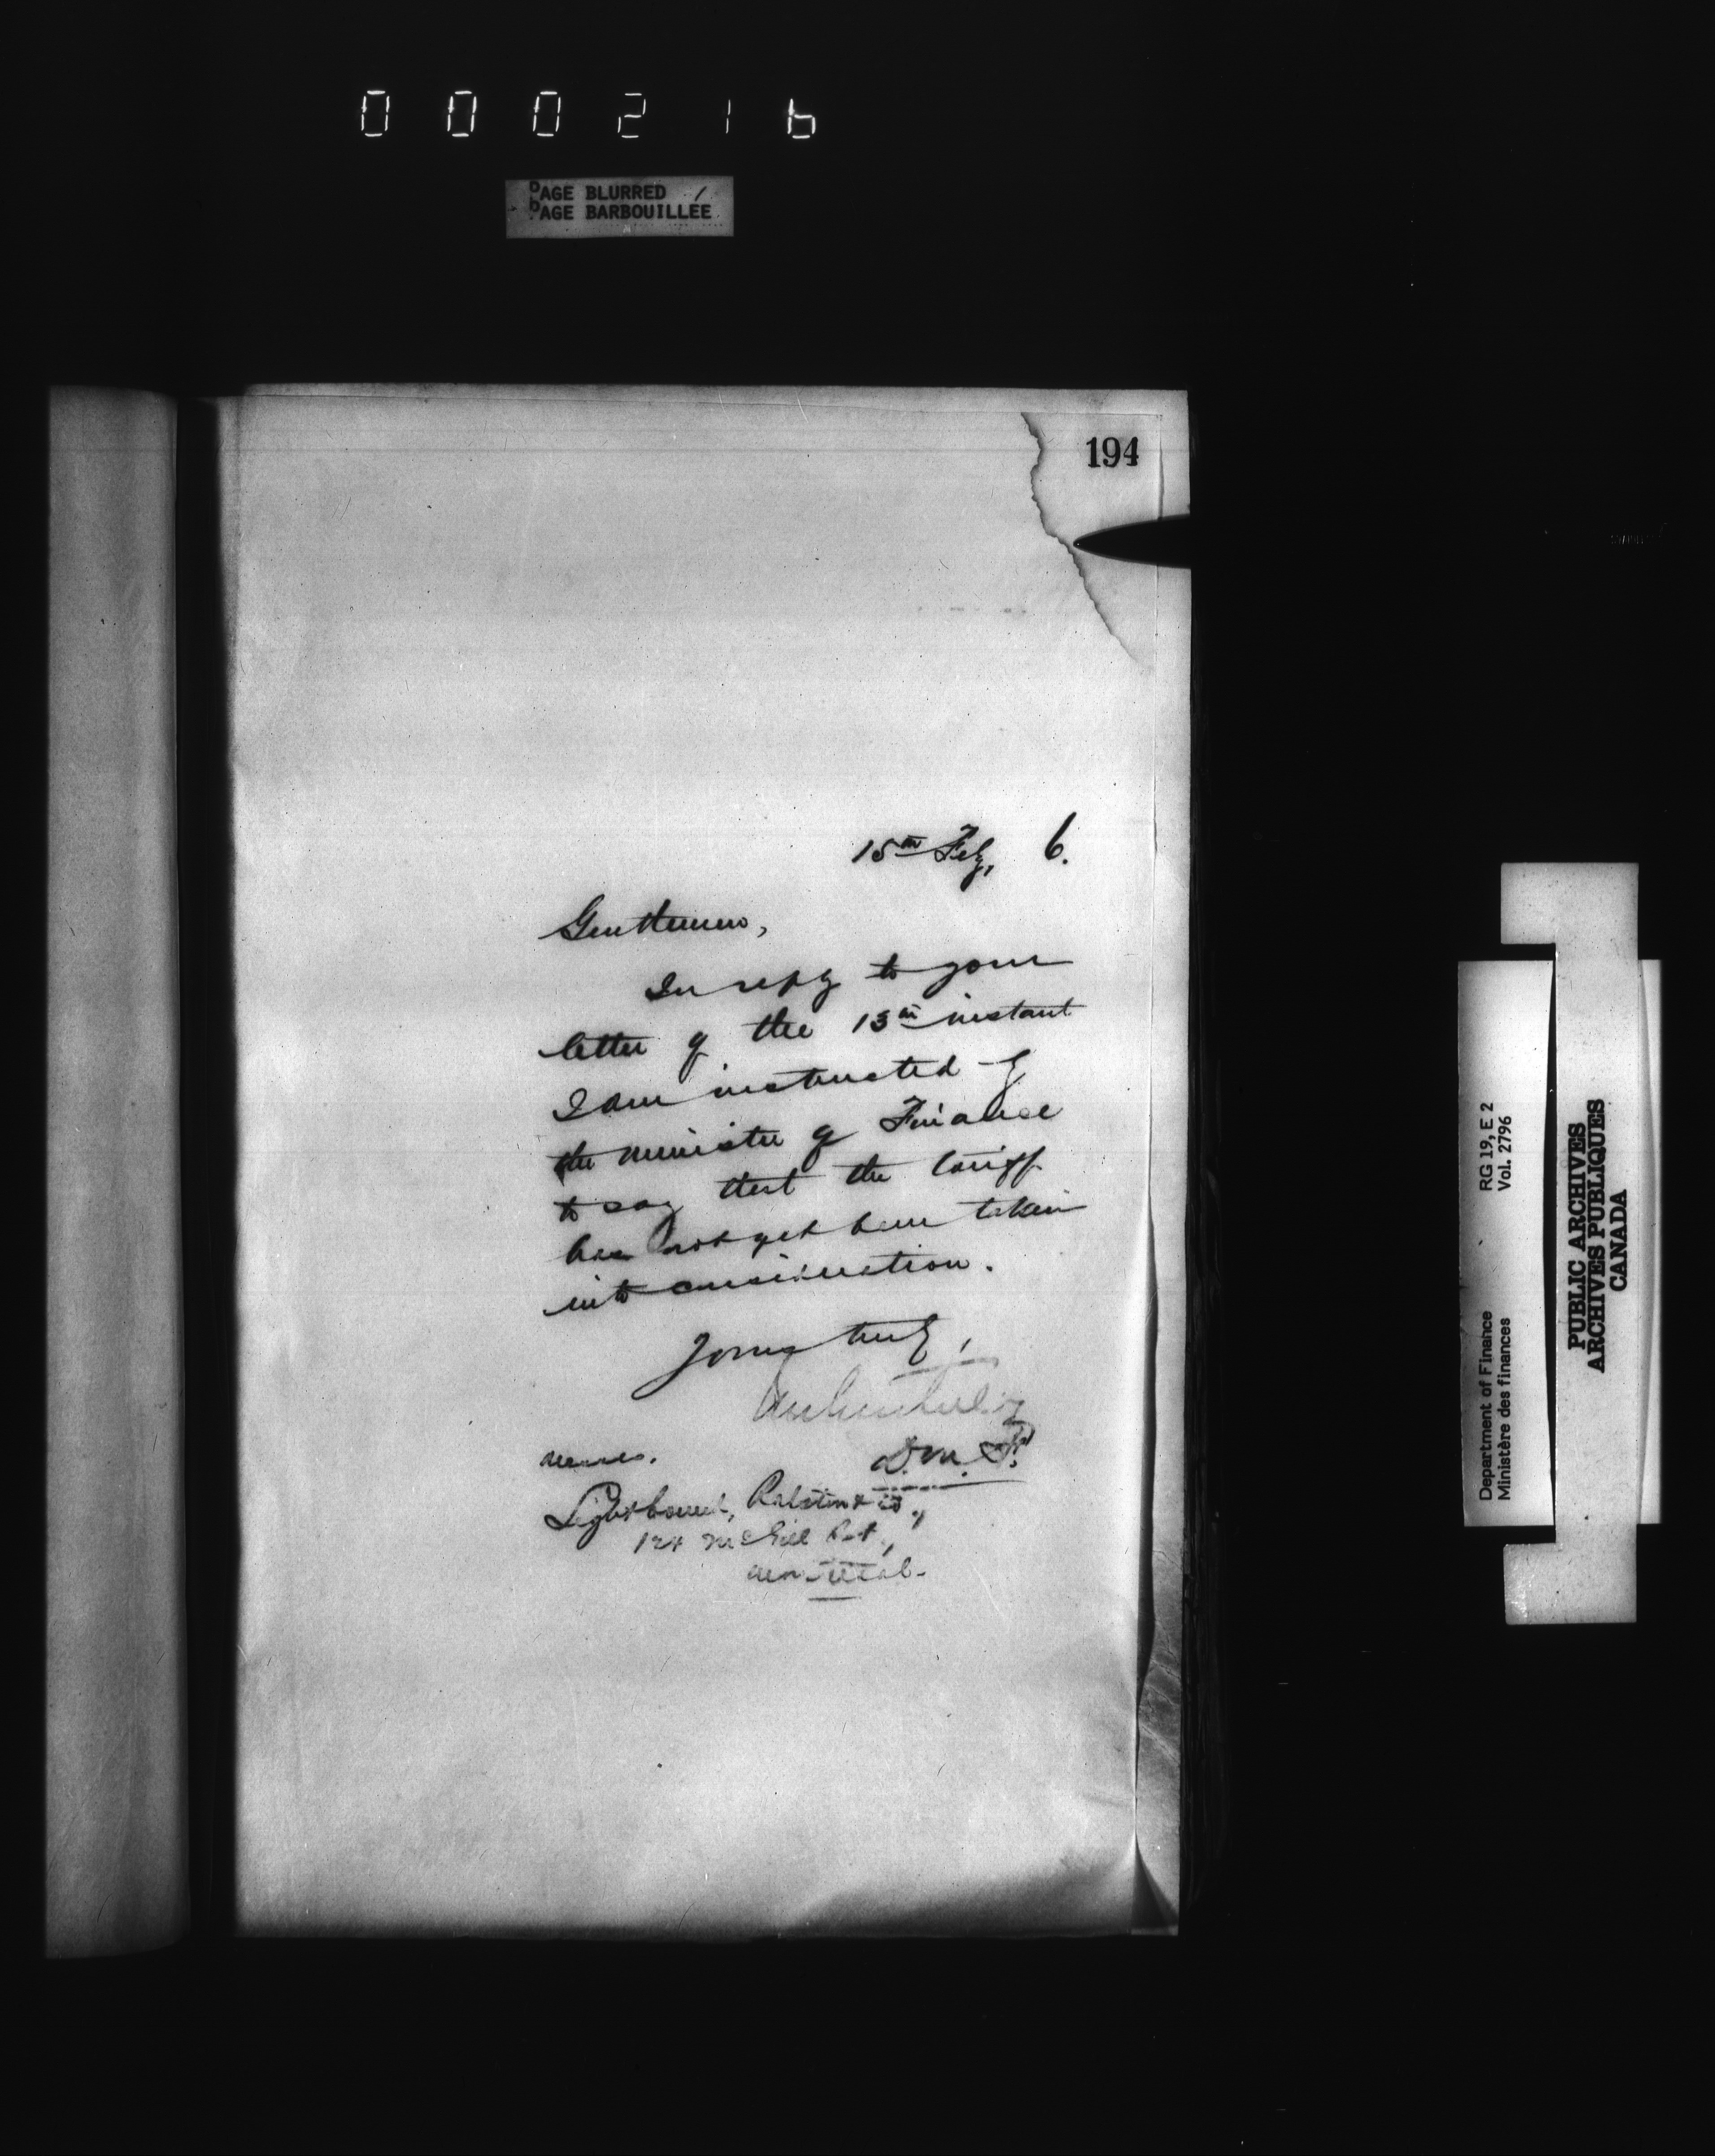 000216
PAGE BLURRED
PAGE BARBOUILLÉE
194
15th Feby, 6.
Gentlemen,
In reply to your
letter of the 13th instant
I am instructed by
the Minister of Finance
to say that the tariff
has not yet been taken
into consideration.
Yours truly,
D.M.F.
Messrs.
Lightbound, Ralston & Co.,
124 McGill St.,
Montreal.
Department of Finance RG 19, E 2
Ministère des finances Vol. 2796
PUBLIC ARCHIVES
ARCHIVES PUBLIQUES
CANADA